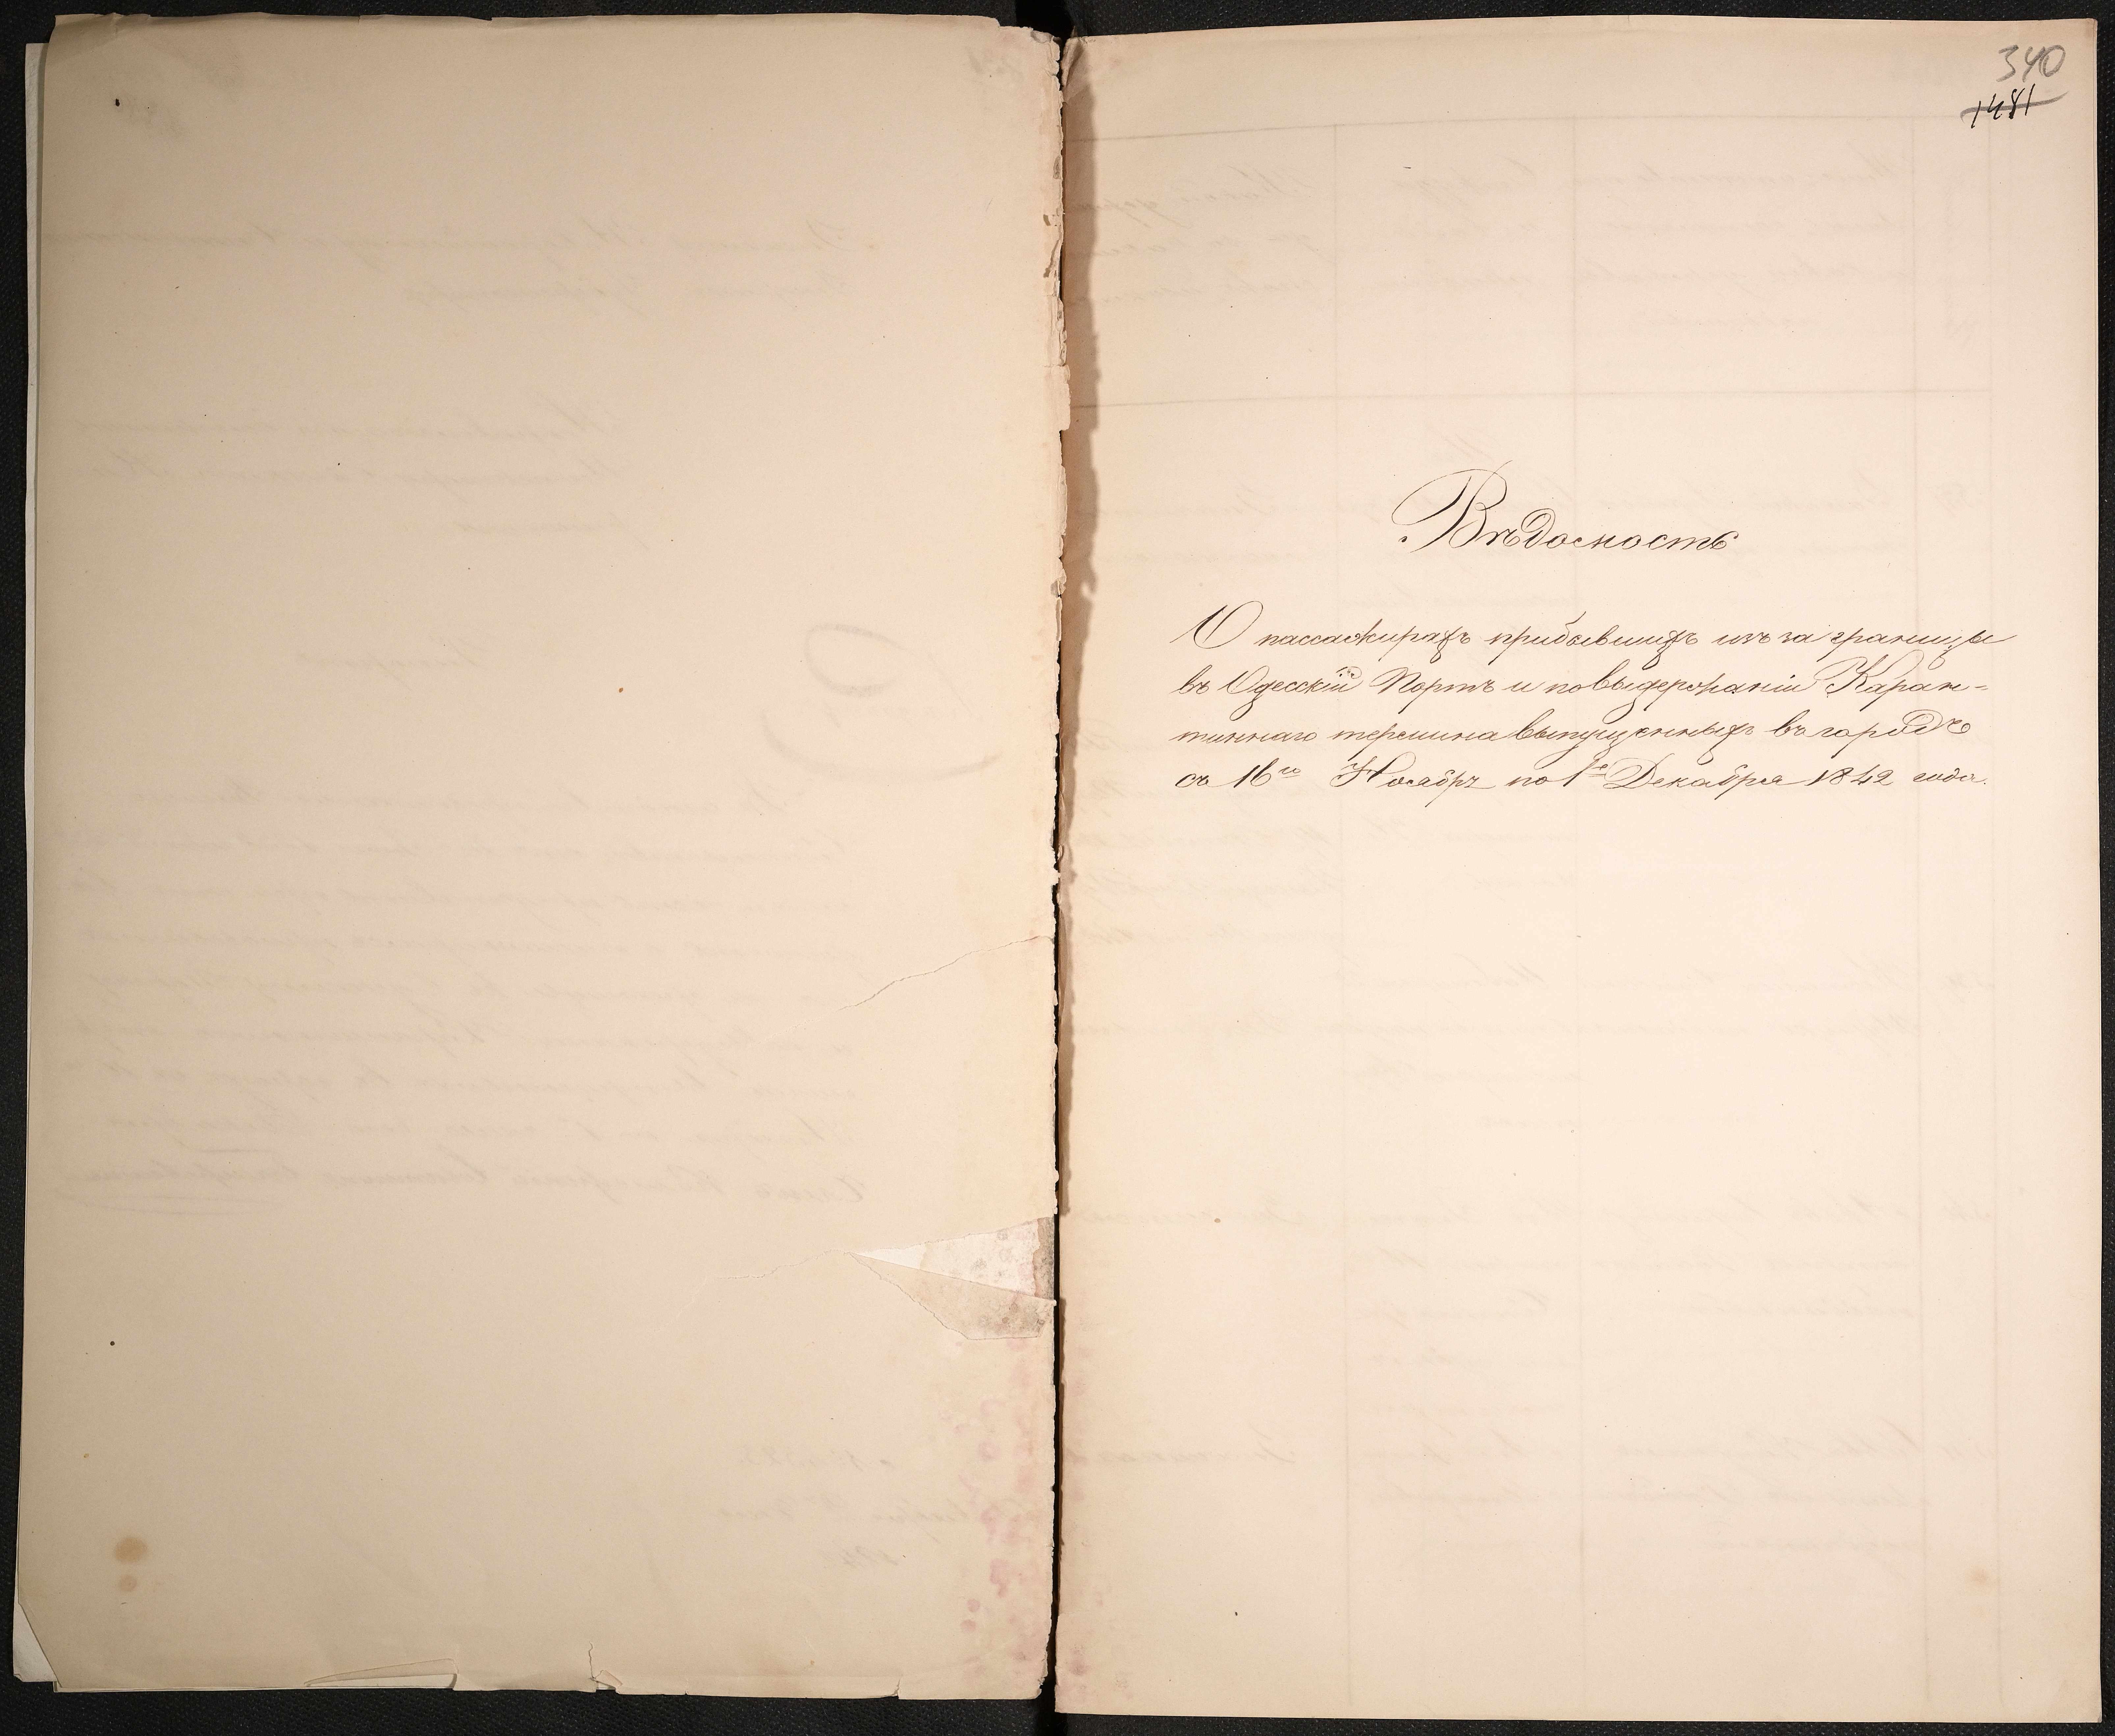 340
1481
Вѣдомость
О пассажирахъ прибывшихъ изъ за границы
въ Одесскій Портъ и по выдержаніи Каран-
тиннаго термина выпущенныхъ въ городъ
съ 16го Ноября по 1е Декабря 1842 года.